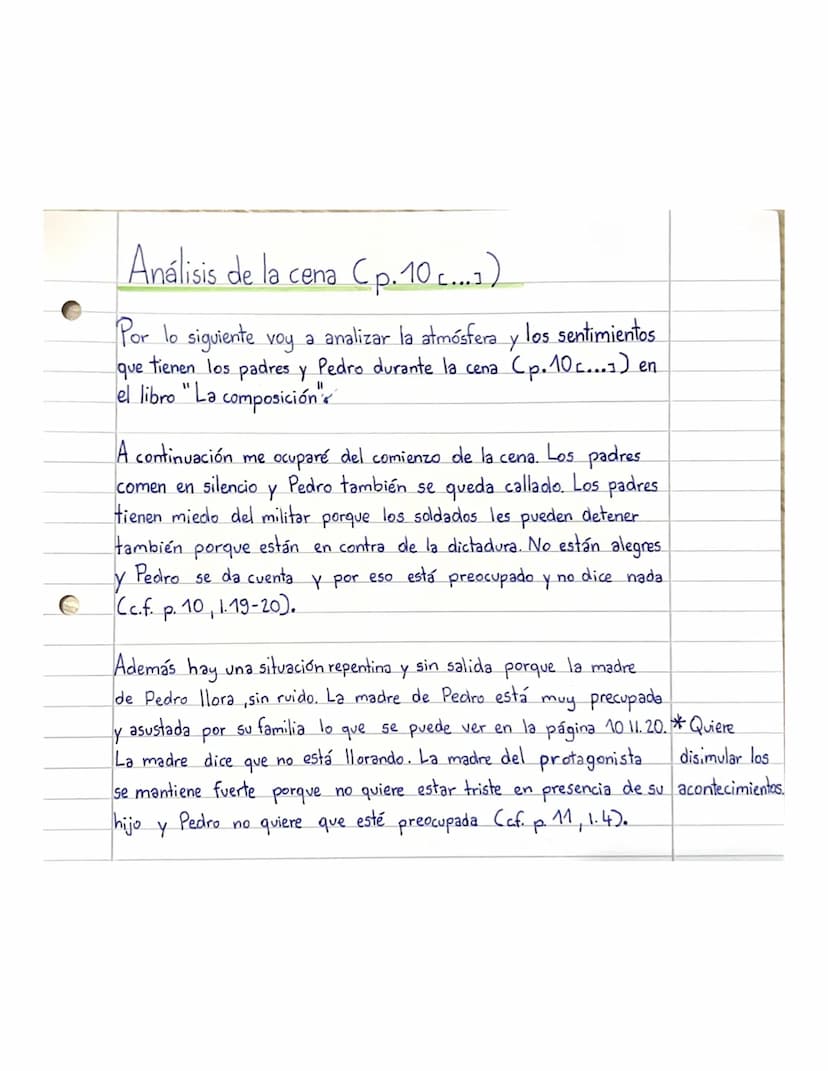 Análisis de la cena (p.10 [...])
Por lo siguiente voy a analizar la atmósfera y los sentimientos
que tienen los padres y Pedro durante la cena (p.10[...]) en
el libro "La composición".
A continuación me ocuparé del comienzo de la cena. Los padres
comen en silencio y Pedro también se queda callado. Los padres
tienen miedo del militar porque los soldados les pueden detener
también porque están en contra de la dictadura. No están alegres
y Pedro se da cuenta y por eso está preocupado y no dice nada
(c.f. p. 10, l.19-20).
Además hay una situación repentina y sin salida porque la madre
de Pedro llora, sin ruido. La madre de Pedro está muy precupada
y asustada por su familia lo que se puede ver en la página 10 ll. 20.
* Quiere
La madre dice que no está llorando. La madre del protagonista
disimular los
se mantiene fuerte porque no quiere estar triste en presencia de su
acontecimientos.
hijo y Pedro no quiere que esté preocupada (cf. p. 11, l. 4).